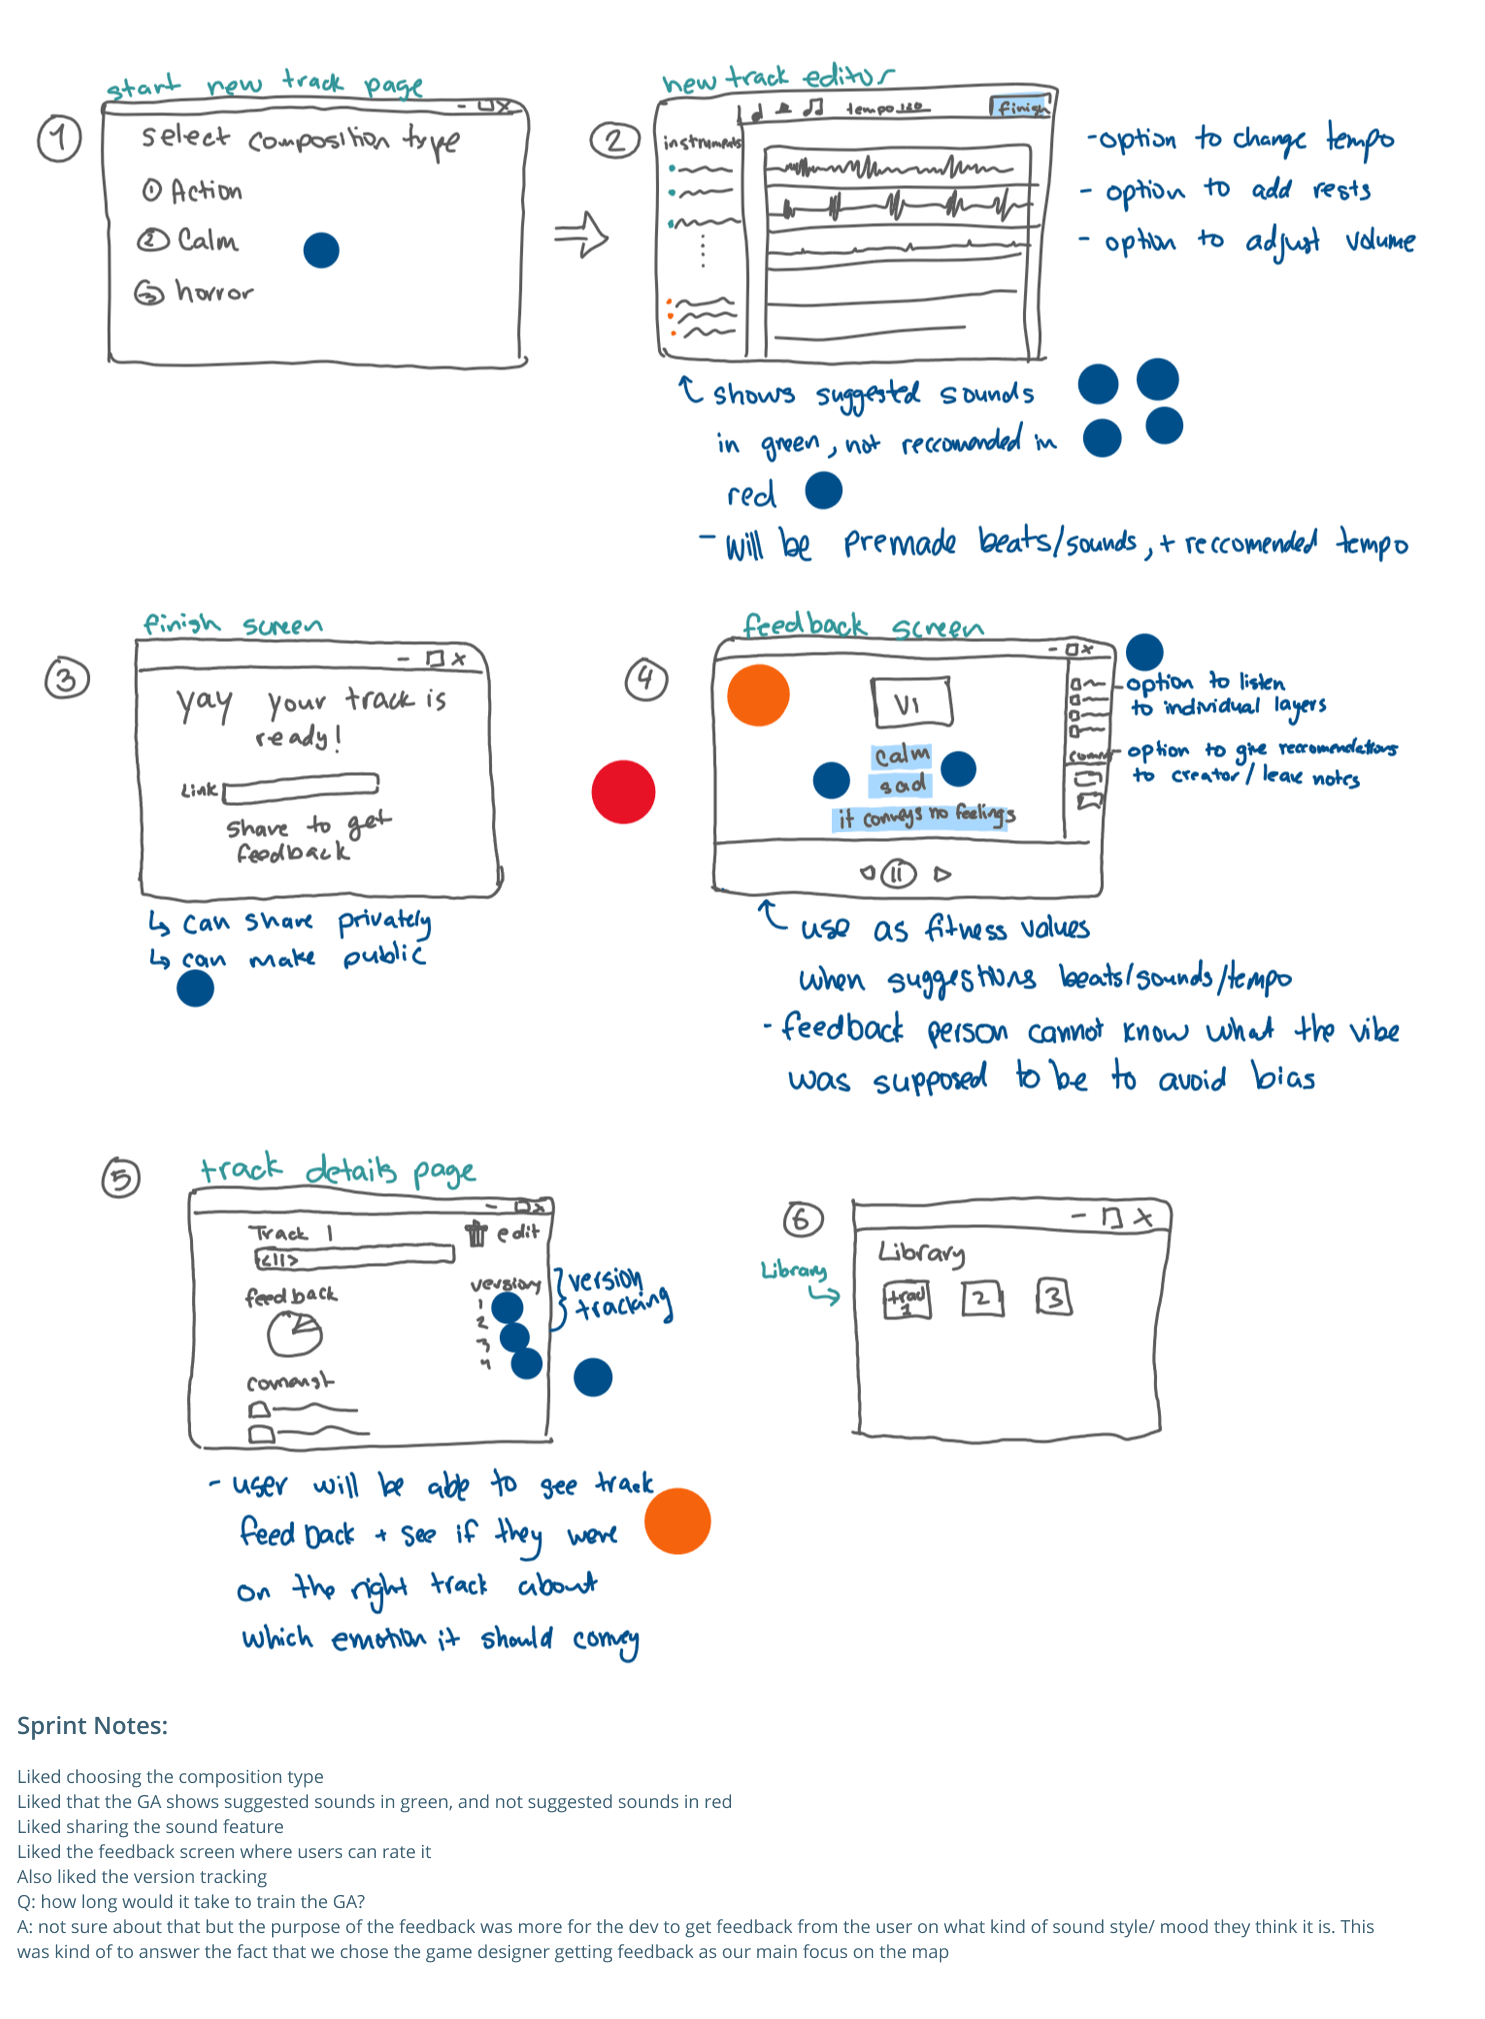 start new track page
1
select composition type
1 Action
2 Calm
3 horror
new track editor
2
tempo 120
finish
instruments
-option to change tempo
- option to add rests
- option to adjust volume
shows suggested sounds
in green, not reccomended in
red
- will be premade beats/sounds, + reccomended tempo
finish screen
3
yay your track is
ready!
Link
share to get
feedback
↳ can share privately
↳ can make public
feedback screen
4
V1
calm
sad
it conveys no feelings
-option to listen
to individual layers
-option to give reccomendations
to creator / leave notes
use as fitness values
when suggestions beats/sounds/tempo
- feedback person cannot know what the vibe
was supposed to be to avoid bias
5
track details page
Track 1
edit
<11>
feedback
version
1
2
3
4
version
tracking
- user will be able to see track
feedback + see if they were
on the right track about
which emotion it should convey
6
Library
Library
2
3
Sprint Notes:
Liked choosing the composition type
Liked that the GA shows suggested sounds in green, and not suggested sounds in red
Liked sharing the sound feature
Liked the feedback screen where users can rate it
Also liked the version tracking
Q: how long would it take to train the GA?
A: not sure about that but the purpose of the feedback was more for the dev to get feedback from the user on what kind of sound style/ mood they think it is. This
was kind of to answer the fact that we chose the game designer getting feedback as our main focus on the map